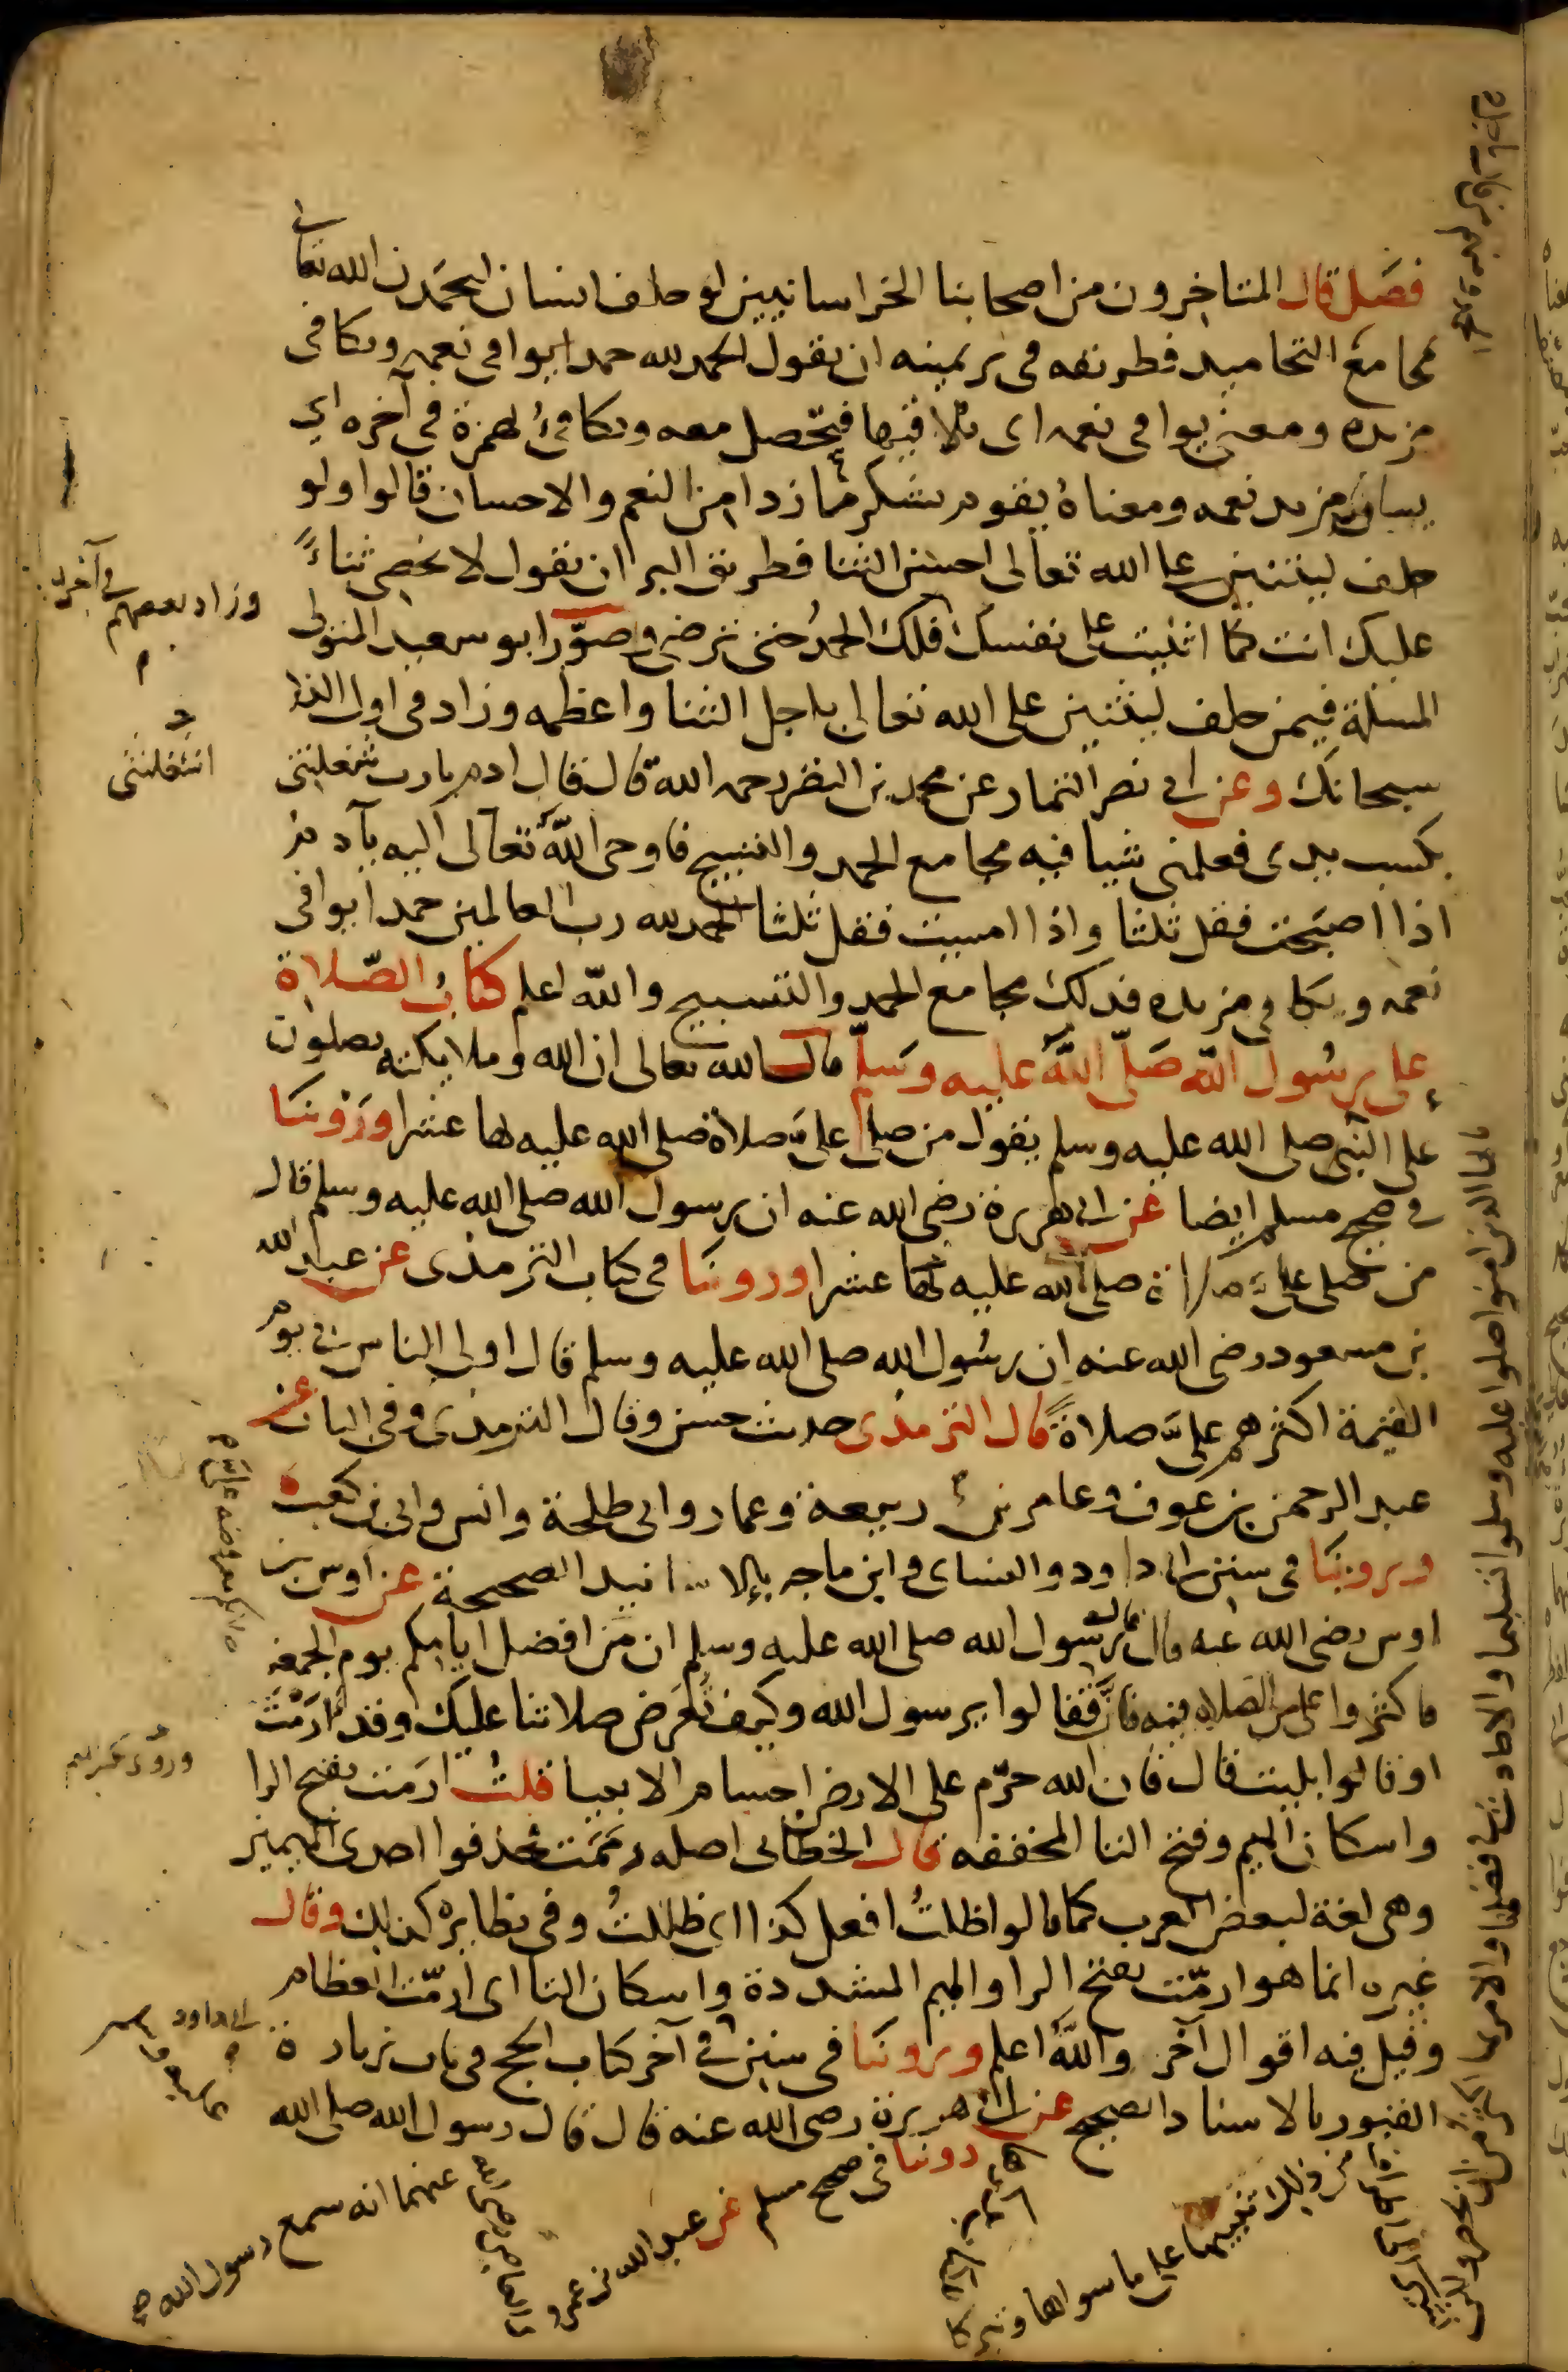 فصل قال المتاخرون من اصحابنا الخراسانيين لو حلف انسان ليحمدن الله تعالى
بمجامع التحاميد فطريقه في بر يمينه ان يقول الحمد لله حمدا يوافي نعمه ويكافي
مزيده ومعنى يوافي نعمه اي يلاقيها فتحصل معه ويكافئ بهمزة في آخره اي
يساوي مزيد نعمه ومعناه يقوم بشكر ما زاد من النعم والاحسان قالوا ولو
حلف ليثنين على الله تعالى احسن الثنا فطريق البر ان يقول لا نحصي ثناءً
عليك انت كما اثنيت على نفسك فلك الحمد حتى ترضى وصوّر ابو سعيد المتولي
المسئلة فيمن حلف ليثنين على الله تعالى باجل الثنا واعظمه وزاد في اول الذكر
سبحانك وعن ابي نصر التمار عن محمد بن النضر رحمه الله قال قال ادم يارب شغلتني
بكسب يدي فعلمني شيا فيه مجامع الحمد والتسبيح فاوحى الله تعالى اليه يآدم
اذا اصبحت فقل ثلثا واذا امسيت فقل ثلثا الحمد لله رب العالمين حمدا يوافي
نعمه ويكافي مزيده فذلك مجامع الحمد والتسبيح والله اعلم كتاب الصّلاة
على رسول الله صَلّى اللّه عليه وسَلّم قال الله تعالى ان الله وملايكته يصلون
على النبي صلى الله عليه وسلم يقول من صلى علىَّ صلاة صلى الله عليه بها عشرا وروينا
في صحيح مسلم ايضا عن ابي هريرة رضي الله عنه ان رسول الله صلى الله عليه وسلم قال
من صلى علىَّ صلاة صلى الله عليه بها عشرا وروينا في كتاب الترمذي عن عبد الله
بن مسعود رضي الله عنه ان رسول الله صلى الله عليه وسلم قال اولى الناس بي يوم
القيمة اكثرهم علىَّ صلاةً قال الترمذي حديث حسن وقال الترمذي وفي الباب عن
عبد الرحمن بن عوف وعامر بن ربيعة وعمار وابي طلحة وانس وابي بن كعب
وروينا في سنن ابي داود والنساي وابن ماجه بالاسانيد الصحيحة عن اوس بن
اوس رضي الله عنه قال قال رسول الله صلى الله عليه وسلم ان من افضل ايامكم يوم الجمعة
فاكثروا علي من الصلاة فيه فان فقالوا يرسول الله وكيف تُعرَض صلاتنا عليك وقد ارَمْتَ
او قالوا بليت قال فان الله حرّم على الارض اجسام الانبيا قلت ارمت بفتح الرا
واسكان الميم وفتح التا المخففه قال الخطابي اصله ارممت فحذفوا احدى الميمين
وهي لغة لبعض العرب كما قالوا ظلتُ افعل كذا اي ظللتُ وفي نظايره كذلك وقال
غيره انما هو ارمّت بفتح الرا والميم المشددة واسكان التا اي ارمّت العظام
وقيل فيه اقوال آخر والله اعلم وروينا في سنن في آخر كتاب الحج في باب زيارة
القبور بالاسناد الصحيح عن ابي هريرة رضي الله عنه قال قال رسول الله صلى الله
وزاد بعضهم في آخره
اشغلتني
صلاتكم معروضه علي
ابي داود
يا ايها الذين امنوا صلوا عليه وسلموا تسليما والاحاديث في فضلها والامر بها اكثر من ان تحصر ولكن
من ذلك تنبيها على ما سواها وتبركا
روينا في صحيح مسلم عن عبد الله بن عمرو
بن العاص رضي الله
عنهما انه سمع رسول الله